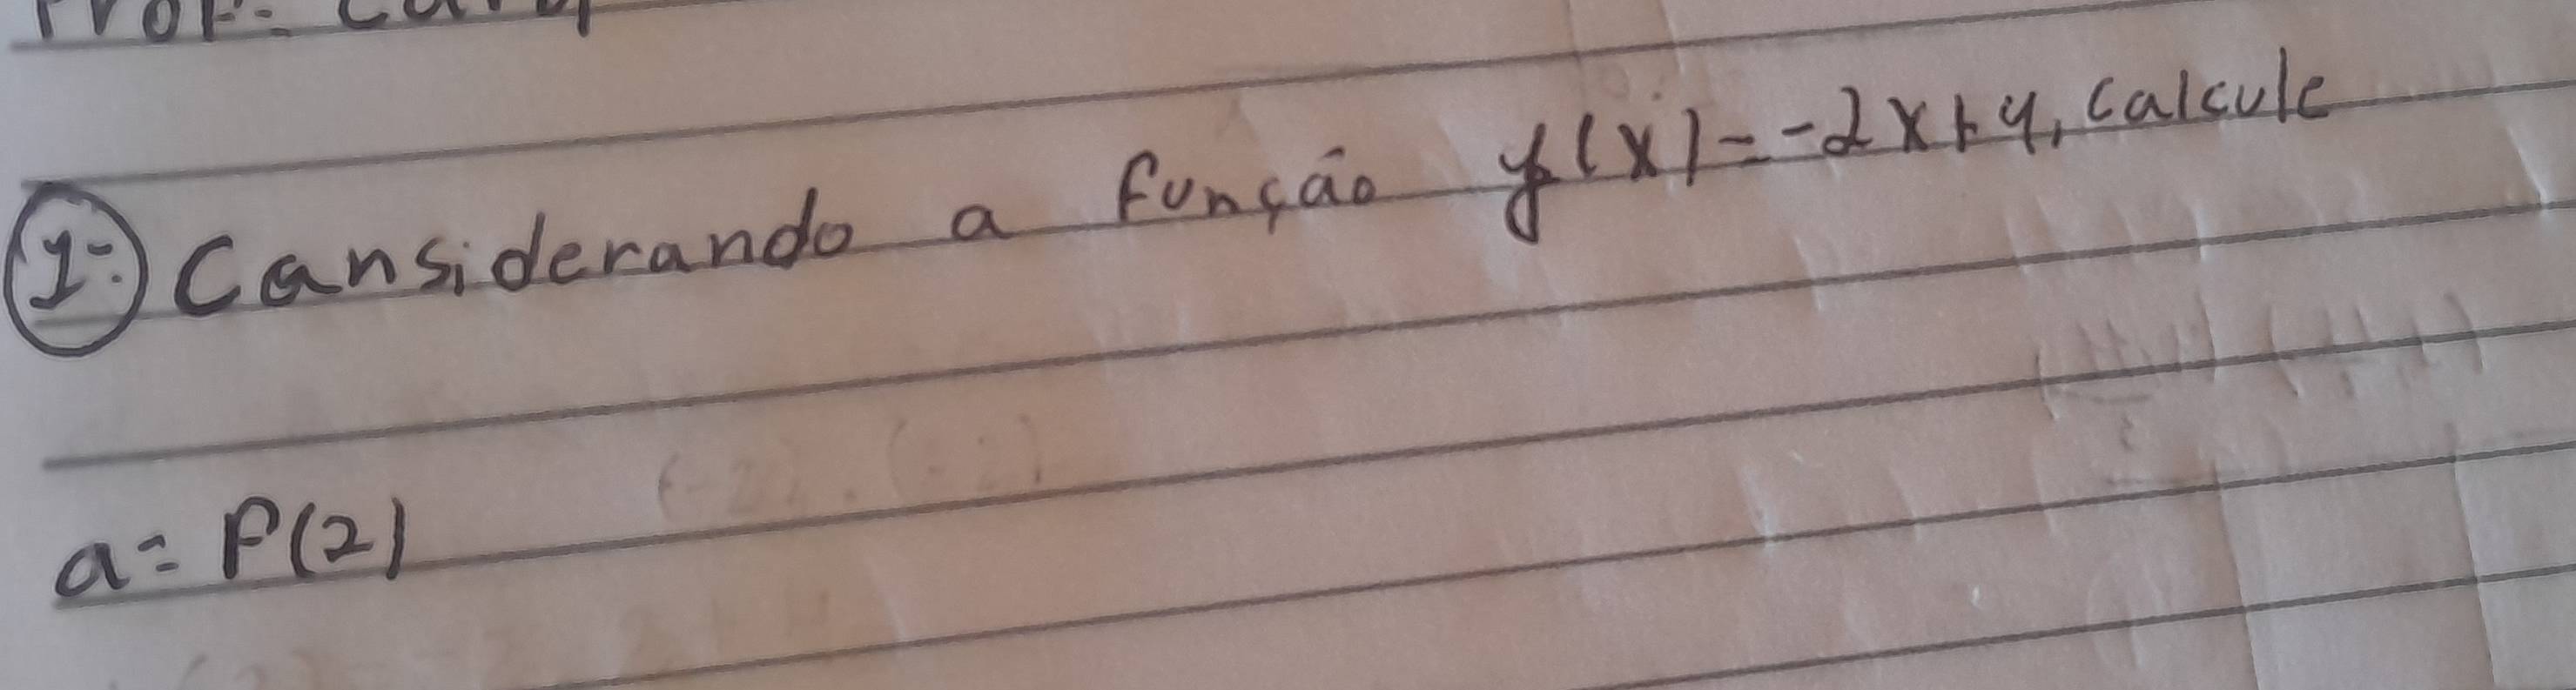 Prof:
1-) Cansiderando a função f(x)=-2x+4, calcule
a= f(2)